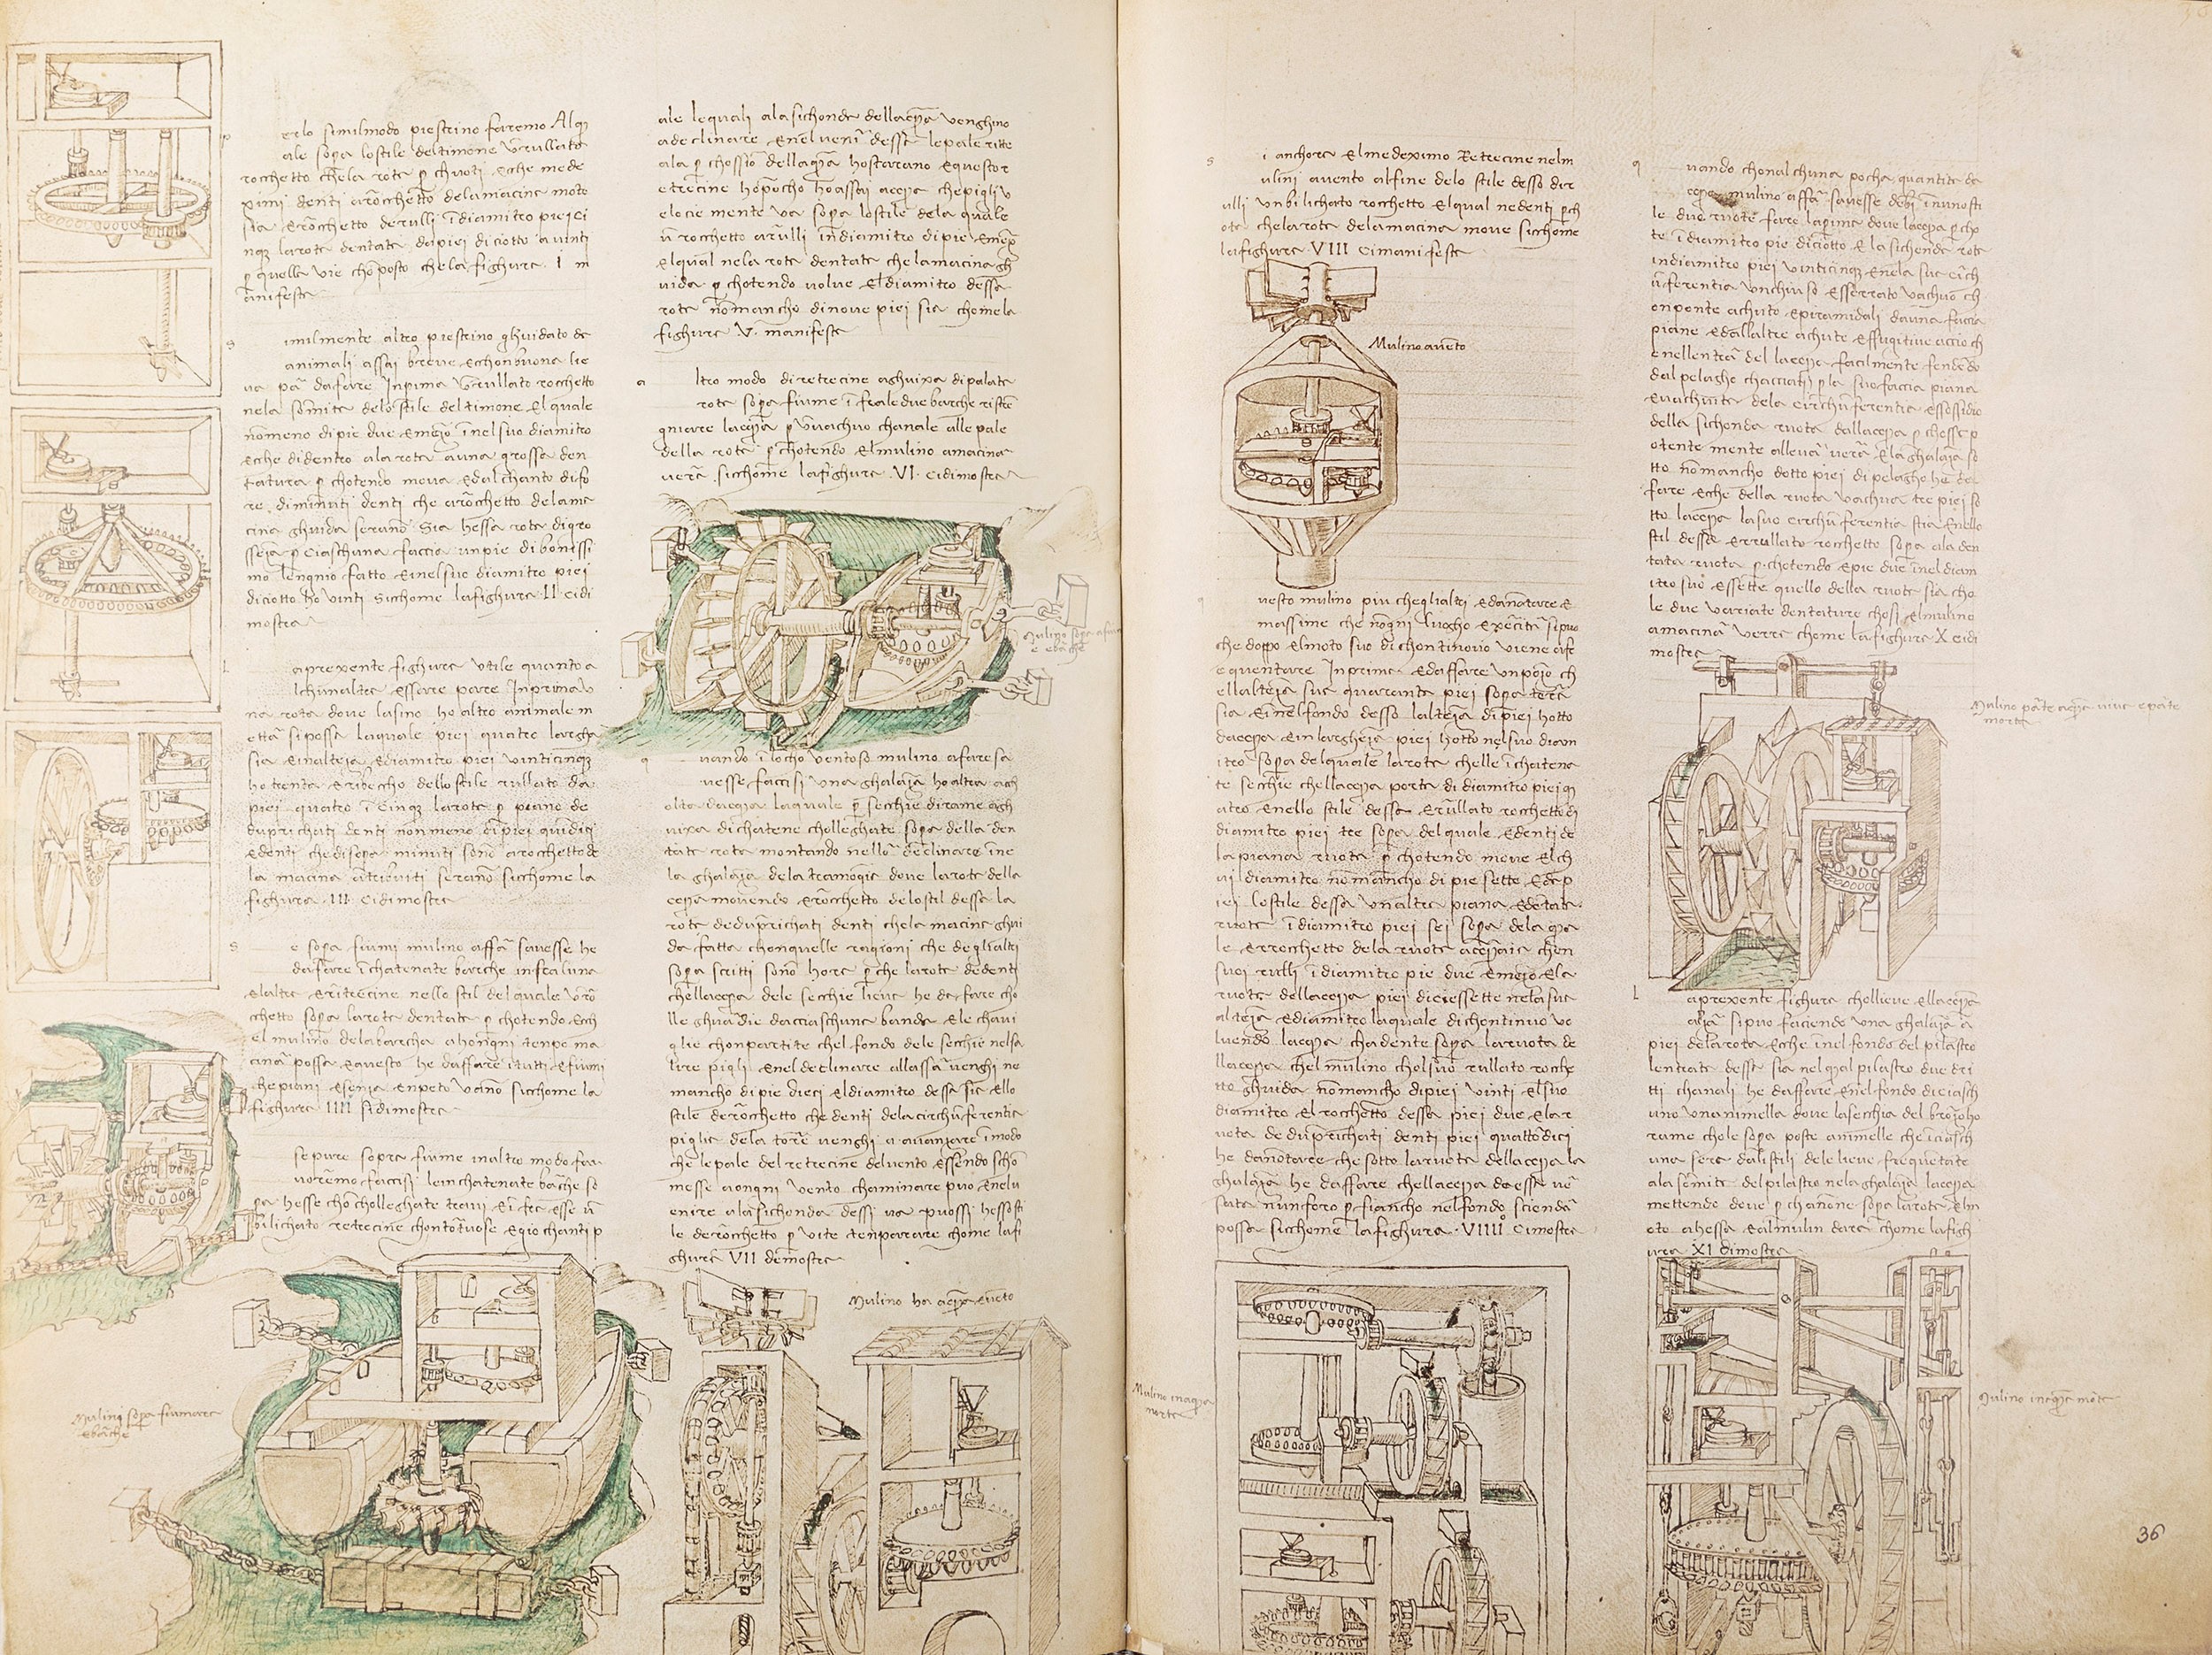 erlo similmodo piestrino faremo Alq
ale sopa lostile deltimone
rocchetto chela rota p chuoti Ecche mede
ximi denti arocchetto delamacina moto
sia Erocchetto derulli idiamitro piei ci
nqz larota dentata dapiei diciotto auinti
p quella via choposto chela fighura I m
anifesta
imilmente altro piestrino ghuidato da
animali assai breue Ecchonbuona lie
ua dafare Inprima rocchetto
nela somita delo stile deltimone Elquale
nomeno dipie due Emezo inelsuo diamitro
Ecche didentro ala rota auna grossa den
tatura p chotendo moua Edalchanto difo
re diminuti denti che arocchetto delama
cina ghuida serano Sia hessa rota digro
sseza p Ciaschuna faccia unpie dibonissi
mo lengnio fatto Einelsuo diamitro piei
diciotto ho uinti Sicchome lafighura II cidi
mostra
aprexente fighura Vtile quanto a
lchunaltra Essere pare Inprima v
na rota doue lasino ho altro animale m
etta sipossa laquale piei quatro largha
sia Einalteza Ediamitro piei uinticinqz
ho trenta Eribecho dello stile rullato da
piei quatro i Cinqz larota p piano de
duprichati denti non meno dipiei quidici
Edenti chedisopa minuti sono arocchetto de
la macina atribuiti serano sicchome la
fighura III Cidimostra
e sopa fiumi mulino affar sauesse he
dafare ichatenate barche infraluna
Elaltra Eritrecine nello stil delquale ro
cchetto sopa larota dentata p chotendo Ecch
el mulino delabarcha ahongni tenpo ma
cinar possa Equesto he daffare itutti Efiumi
chepiani Esenza uano sicchome la
fighura IIII sidimostra
se pure sopra fiume inaltro modo far
uoremo faccisi leinchatenate barche so
pa hesse cho cholleghate traui Ei fra esse u
bilichato retrecine chontortuose Egiochanti p
Mulini sopa fiumare
Ebarche
ale lequali ala sichonda dellacqua venghino
adeclinare Enelueni dessa lepale ritte
ala p chossio dellacqua hostarano Equesto r
etrecine hopocho hoassai acqua chepigli v
eloce mente va sopa lostile dela quale
u rocchetto arulli in diamitro di pie Emezo
Elqual nela rota dentata che lamacina gh
uida p chotendo volue Eldiamitro dessa
rota nomancho dinoue piei sia chomela
fighura V manifesta
ltro modo diretrecine aghuixa dipalata
rota sopa fiume i frale due barche ristre
gniare lacqua p Vuachuo chanale alle pale
della rota p chotendo Elmulino amacina
uera sicchome lafighura VI cidimostra
Mulino sopa afiume
e ebache
uando i locho ventoso mulino afare sa
uesse faccisi una ghalaza ho altra ach
olta dacqua laquale p secchie dirame agh
uixa dichatene cholleghate sopa della den
tata rota montando nello declinare ine
la ghalaza dela tramogia doue larota della
cqua mouendo Erocchetto delostil dessa la
rota deduprichati denti chela macina ghui
da fatta chonquelle ragioni che deglialtri
sopa scritti sono hora p che larota dedenti
chellacqua dele secchie lieua he da fare cho
lle ghuardie daciaschuna banda Ele chaui
glie chonpartite chel fondo dele secchie nelsa
lire pigli Enel declinare allassar venghi no
mancho dipie dieci eldiamitro dessa sia Ello
stile derocchetto che denti delacirchuferentia
piglia dela torre uenghi a auanzare imodo
che lepale del retrecine deluento Essendo scho
messe aongni Vento chaminare puo Enelu
enire alasichonda dessi ua puossi hessosti
le derocchetto p uite tenparare chome lafi
ghura VII demostra
Mulino ha acqua Eueto
i anchora Elmedeximo Retrecine nelm
ulini auento alfine delo stile desso dir
ulli Vnbilichato rocchetto Elqual nedenti p ch
ote chelarota delamacina moue sicchome
lafighura VIII cimanifesta
Mulino aueto
uesto mulino piu cheglialtri Edanotare E
massime che nongni luogho Exercitar sipuo
che doppo Elmoto suo di chontinouo uiene afr
equentare Inprima Edaffare Vnpozo ch
ellalteza sua quaranta piei sopa terra
sia Einelfondo desso lalteza dipiei hotto
dacqua Ein largheza piei hotto nelsuo diam
itro sopa delquale larota chelle ichatena
te secchie chellacqua porta di diamitro piei q
atro Enello stile dessa Erullato rocchetto di
diamitro piei tre sopa delquale Edenti de
lapiana ruota p chotendo moue Elch
ui diamitro nomancho di pie sette Edap
iei lostile dessa Vnaltra piana Edentata
ruota idiamitro piei sei sopa dela qua
le Errocchetto dela ruota acquaia chen
suoi rulli idiamitro pie due Emezo Ela
ruota dellacqua piei diciessette nelasua
alteza Ediamitro laquale dichontinuo vo
luendo lacqua chadente sopa laruota de
llacqua chel mulino cholsuo rullato rocche
tto ghuida nomancho dipiei Vinti Elsuo
diamitro El rocchetto dessa piei due Elar
uota de duprichati denti piei quattordici
he danotare che sotto laruota dellacqua la
ghalaza he daffare chellacqua daessa uer
sata nunforo p fiancho nelfondo scienda
possa sicchome lafighura VIIII cimostra
Mulino inacqua
morta
uando chonalchuna pocha quantita da
cqua mulino affar sauesse deui inunosti
le due ruote fare laprima doue lacqua p cho
te idiamitro pie diciotto E la sichonda rota
indiamitro piei uinticinqz Enela sua circh
uferentia Vnchiuso Esserrato Vachuo ch
onponte achute Epiramidali dauna faccia
piane Edallaltre achute Effugitiue acciò ch
enellentrar del lacqua facilmente fendendo
dal pelagho chacciati p la sua faccia piana
Euachuita dela circhuferentia Essossidio
della sichonda ruota dallacqua p chossa p
otente mente alleuar uera Ela ghalaza so
tto nomancho dotto piei di pelagho he da
fare Ecche della ruota vachua tre piei so
tto lacqua lasua circhuferentia stia Enello
stil dessa Errullato rocchetto sopa ala den
tata ruota p chotendo Epie due ineldiam
itro suo Essette quello della ruota sia cho
le due uariate dentature chosi Elmulino
amacinar verra chome lafighura X cidi
mostra
Mulino parte acqua uiua eparte
morta
aprexente fighura chollieua Ellacqua
alzar sipuo faciendo una ghalaza a
piei delarota Ecche inel fondo del pilastro
lentrata dessa sia nelqual pilastro due dri
tti chanali he daffare Enel fondo diciasch
uno Vnanimella doue lasecchia del bronzo ho
rame chole sopa poste animelle che iciasch
una sera dalistili dele lieue frequetata
ala somita del pilastro nela ghalaza lacqua
mettendo doue p chanone sopa larota Elm
oto ahessa Ealmulin dara chome lafigh
ura XI dimostra
Mulino inacqua morta
36